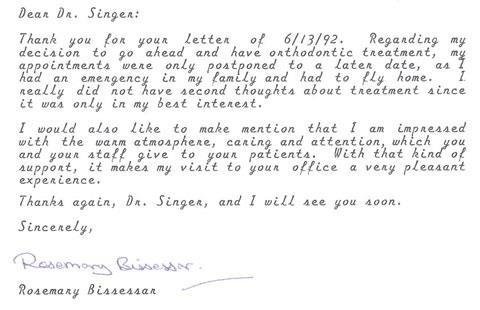 Dear Dr. Singer:
Thank you for your letter of 6/13/92. Regarding my
decision to go ahead and have orthodontic treatment, my
appointments were only postponed to a later date, as I
had an emergency in my family and had to fly home. I
really did not have second thoughts about treatment since
it was only in my best interest.
I would also like to make mention that I am impressed
with the warm atmosphere, caring and attention, which you
and your staff give to your patients. With that kind of
support, it makes my visit to your office a very pleasant
experience.
Thanks again, Dr. Singer, and I will see you soon.
Sincerely,
Rosemary Bissessar.
Rosemary Bissessar